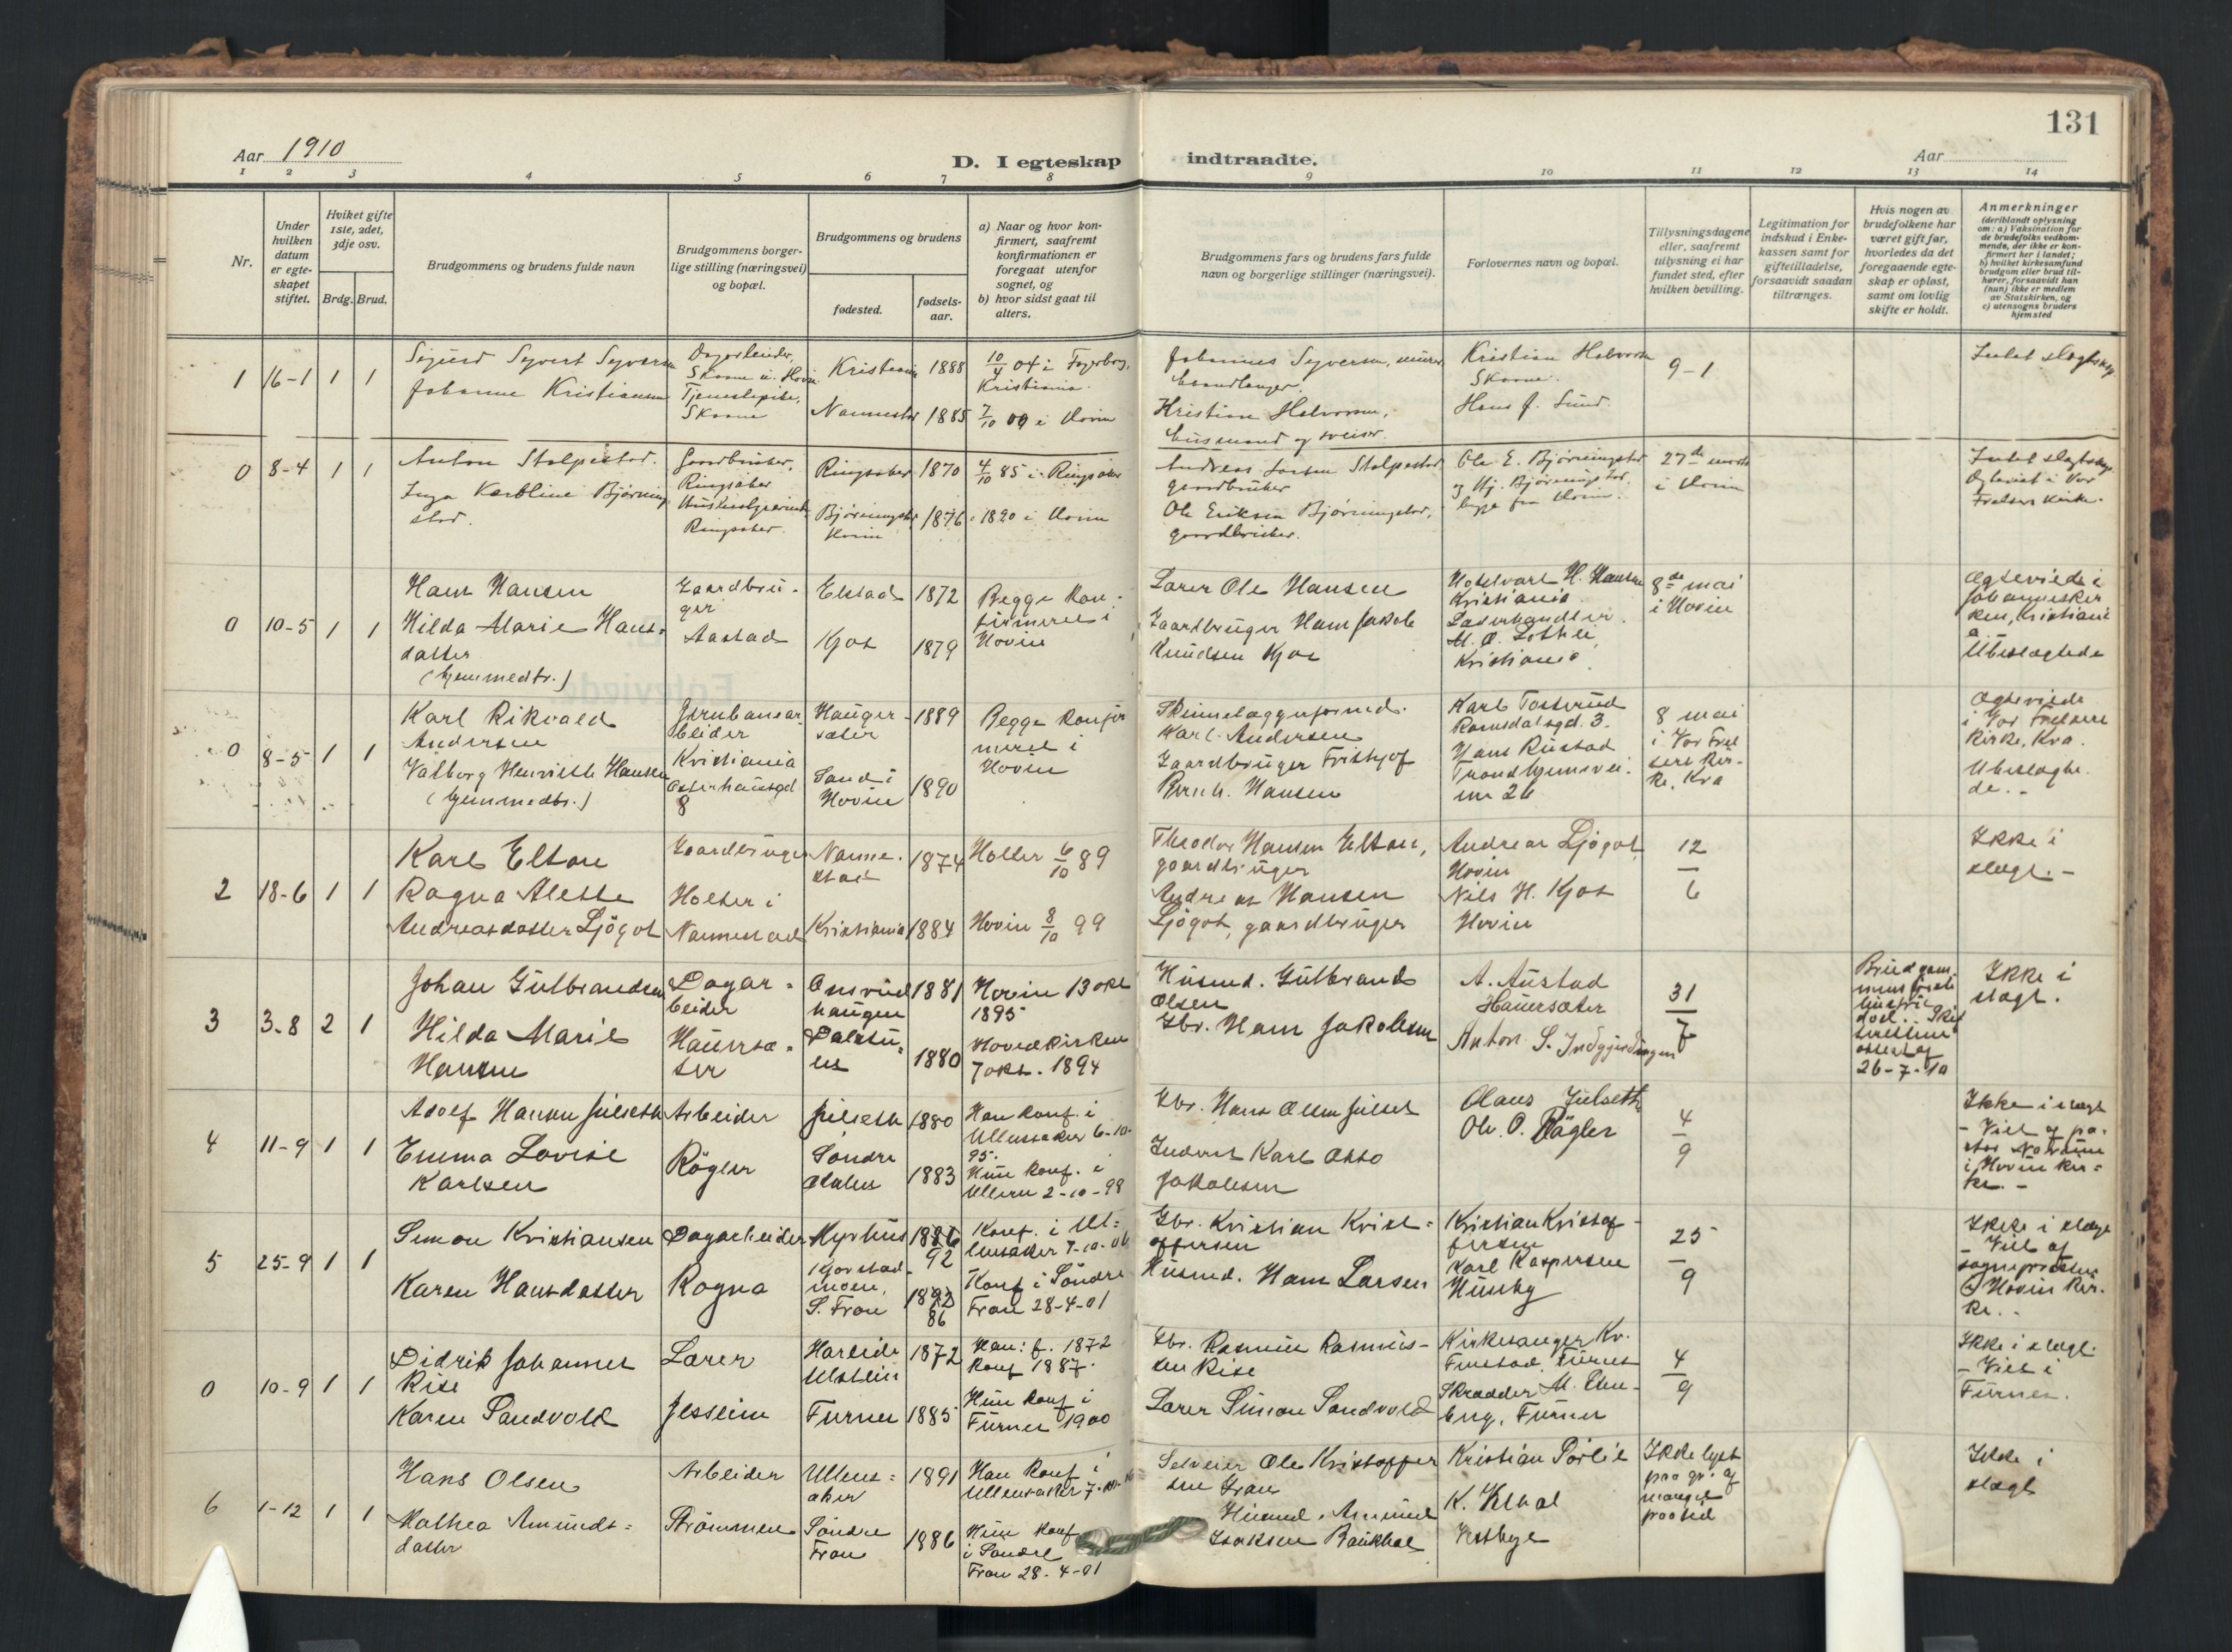 131
Aar 1910
D. I egteskap indtraadte.
Aar
1 2 3 4 5 6 7 8 9 10 11 12 13 14
Nr.
Under hvilken datum er egteskapet stiftet.
Hvilket gifte 1ste, 2det, 3dje osv.
Brdg. Brud.
Brudgommens og brudens fulde navn
Brudgommens borgerlige stilling (næringsvei) og bopæl.
Brudgommens og brudens
fødested.
fødselsaar.
a) Naar og hvor konfirmert, saafremt konfirmationen er foregaat utenfor sognet, og
b) hvor sidst gaat til alters.
Brudgommens fars og brudens fars fulde navn og borgerlige stillinger (næringsvei).
Forlovernes navn og bopæl.
Tillysningsdagene eller, saafremt tillysning ei har fundet sted, efter hvilken bevilling.
Legitimation for indskud i Enkekassen samt for giftetilladelse, forsaavidt saadan tiltrænges.
Hvis nogen av brudefolkene har været gift før, hvorledes da det foregaaende egteskap er opløst, samt om lovlig skifte er holdt.
Anmerkninger
(deriblandt oplysning om: a) Vaksination for de brudefolks vedkommende, der ikke er konfirmert her i landet; b) hvilket kirkesamfund brudgom eller brud tilhører, forsaavidt han (hun) ikke er medlem av Statskirken, og c) utensogns bruders hjemsted
1 16-1 1 1
Sigurd Syvert Syversen
Johanne Kristiansen
Kristiania 1888
10/4 04 i Fagerborg, Kristiania.
Nannestad 1885
7/10 00 i Hovin
Johannes Syversen, murerhaandlanger.
Kristian Halvorsen, husmand og sveiser.
Kristian Halvorsen
Hans J. Sund.
9-1
Intet slegtskap
0 8-4 1 1
Anton Stolpestad.
Inga Karoline Bjørningstad.
Gaardbruker, Ringsaker
Ringsaker.
Ringsaker 1870
4/10 85 i Ringsaker
Bjørningstad Hovin 1876
1890 i Hovin
Andreas Larsen Stolpestad gaardbruker
Ole Eriksen Bjørningstad, gaardbruker.
Ole E. Bjørningstad
og Hj. Bjørningstad, begge fra Hovin.
27de marts i Hovin
Intet slegtskap
Egteviet i Vor Frelsers kirke.
0 10-5 1 1
Hans Hansen
Hilda Marie Hansdatter
(hjemmedbr.)
Gaardbruger
Aastad
Elstad 1872
Kjos 1879
Begge konfirmeret i Hovin
Lærer Ole Hansen
Gaardbruger Hans Jakob Knudsen Kjos
Hotelvært H. Hansen Kristiania.
Læderhandler
Kristiania
8de mai i Hovin
Ægteviede i Johanneskirken, Kristiania
Ubeslægtede
0 8-5 1 1
Karl Rikvald Andersen
Valborg Henriette Hansen
(hjemmedbr.)
Jernbanearbeider
Kristiania
Osterhausgd 8
Haugersæter 1889
Sand i Hovin 1890
Begge konfirmeret i Hovin
Skinnelæggerformd. Karl Andersen
Gaardbruger Fritjof Bernh. Hansen
Karl Tosterud
Romsdalsgd. 3.
Hans Rustad
Trondhjemsvei. nr 26
8 mai i Vor Frelsers Kirke, Kra
Ægteviede i Vor Frelsers Kirke, Kra.
Ubeslægtede.-
2 18-6 1 1
Karl Elton
Ragna Alette Andreasdatter Ljøgot
Gaardbruger
Holter i Nannestad
Nannestad 1874
Kristiania 1884
Holter 6/10 89
Hovin 8/10 99
Theodor Hansen Elton, gaardbruger
Andreas Hansen Ljøgot, gaardbruger
Andreas Ljøgot, Hovin
Nils H. Kjos
Hovin
12/6
Ikke i slegt.-
3 3-8 2 1
Johan Gulbrandsen
Hilda Marie Hansen
Dagarbeider
Hauersæter
Onsrudhaugen 1881
1880
Hovin 13 okt 1895
Hovedkirken 7 okt. 1894
Husmd. Gulbrand Olsen
Gbr. Hans Jakobsen
A. Austad
Hauersæter
Anton S. Indgjerdingen
31/7
Brudgommens første hustru død.
26-7-10
Ikke i slegt.
4 11-9 1 1
Adolf Hansen Julseth
Emma Lovise Karlsen
Arbeider
Røgler
Julseth 1880
Søndre Odalen 1883
Han konf. i Ullensaker 6-10-95.
Hun konf. i Ullern 2-10-98
Gbr. Hans Olsen Julset
Inderst Karl Otto Jakobsen
Olaus Julseth
Ole O. Røgler
4/9
Ikke i slegt
- Viet af pastor
i Hovin kirke.-
5 25-9 1 1
Simon Kristiansen
Karen Hansdatter
Dagarbeider
Rogna
Myrhus 1886
92
Kjorstadmoen, S. Fron 1892
86
Konf. i Ullensaker 7-10-06
Konf i Søndre Fron 28-4-01
Gbr. Kristian Kristoffersen
Husmd. Hans Larsen
Kristian Kristoffersen
Karl Kaspersen
Husby
25/9
Ikke i slegt
- Viet af sognepresten
i Hovin Kirke.-
0 10-9 1 1
Didrik Johannes Rise
Karen Sandvold
Lærer
Jessheim
Hareide Ulstein 1872
Furnes 1885
Han: f. 1872
Konf 1887.
Hun konf i Furnes 1900
Gbr. Rasmus Rasmussen Rise
Lærer Simon Sandvold
Kirkesanger Kr. Finstad, Furnes
Skrædder M. Engeberg, Furnes
4/9
Ikke i slegt.
- Viet i Furnes.
6 1-12 1 1
Hans Olsen
Mathea Amundsdatter
Arbeider
Strømmen
Ullensaker 1891
Søndre Fron 1886
Han konf i Ullensaker
Hun konf i Søndre Fron 28-4-01
Selveier Ole Kristoffersen Gran
Husmd. Amund Isaksen Baukhol
Kristian Sørlie
K.
Vestbye
Ikke lyst paa gr. af mangel paa tid
Ikke i slegt